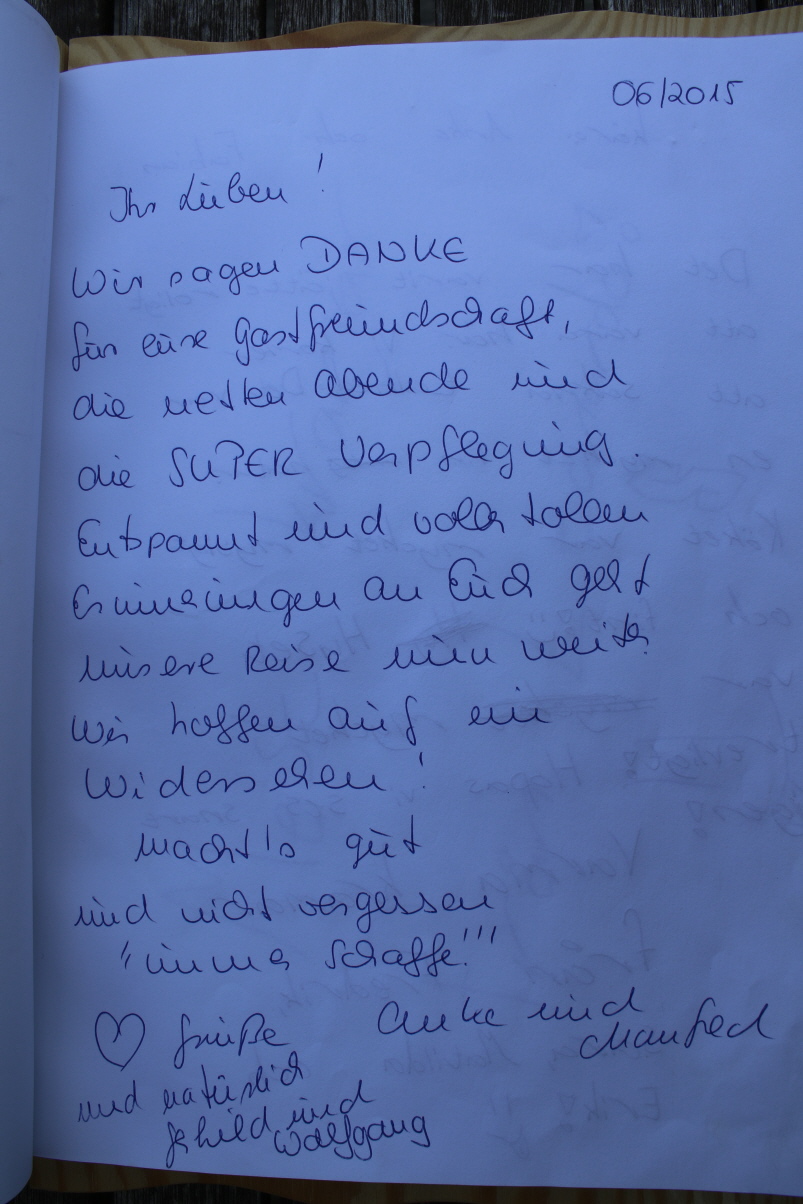 06/2015
Ihr Lieben!
Wir sagen DANKE
für eure Gastfreundschaft,
die netten Abende und
die SUPER Verpflegung.
Entspannt und voller tollen
Erinnerungen an Euch geht
unsere Reise nun weiter
Wir hoffen auf ein
Widersehen!
Macht's gut
und nicht vergessen
"immer schaffe!!!
♡ Grüße Anke und
Manfred
und natürlich
und
Wolfgang